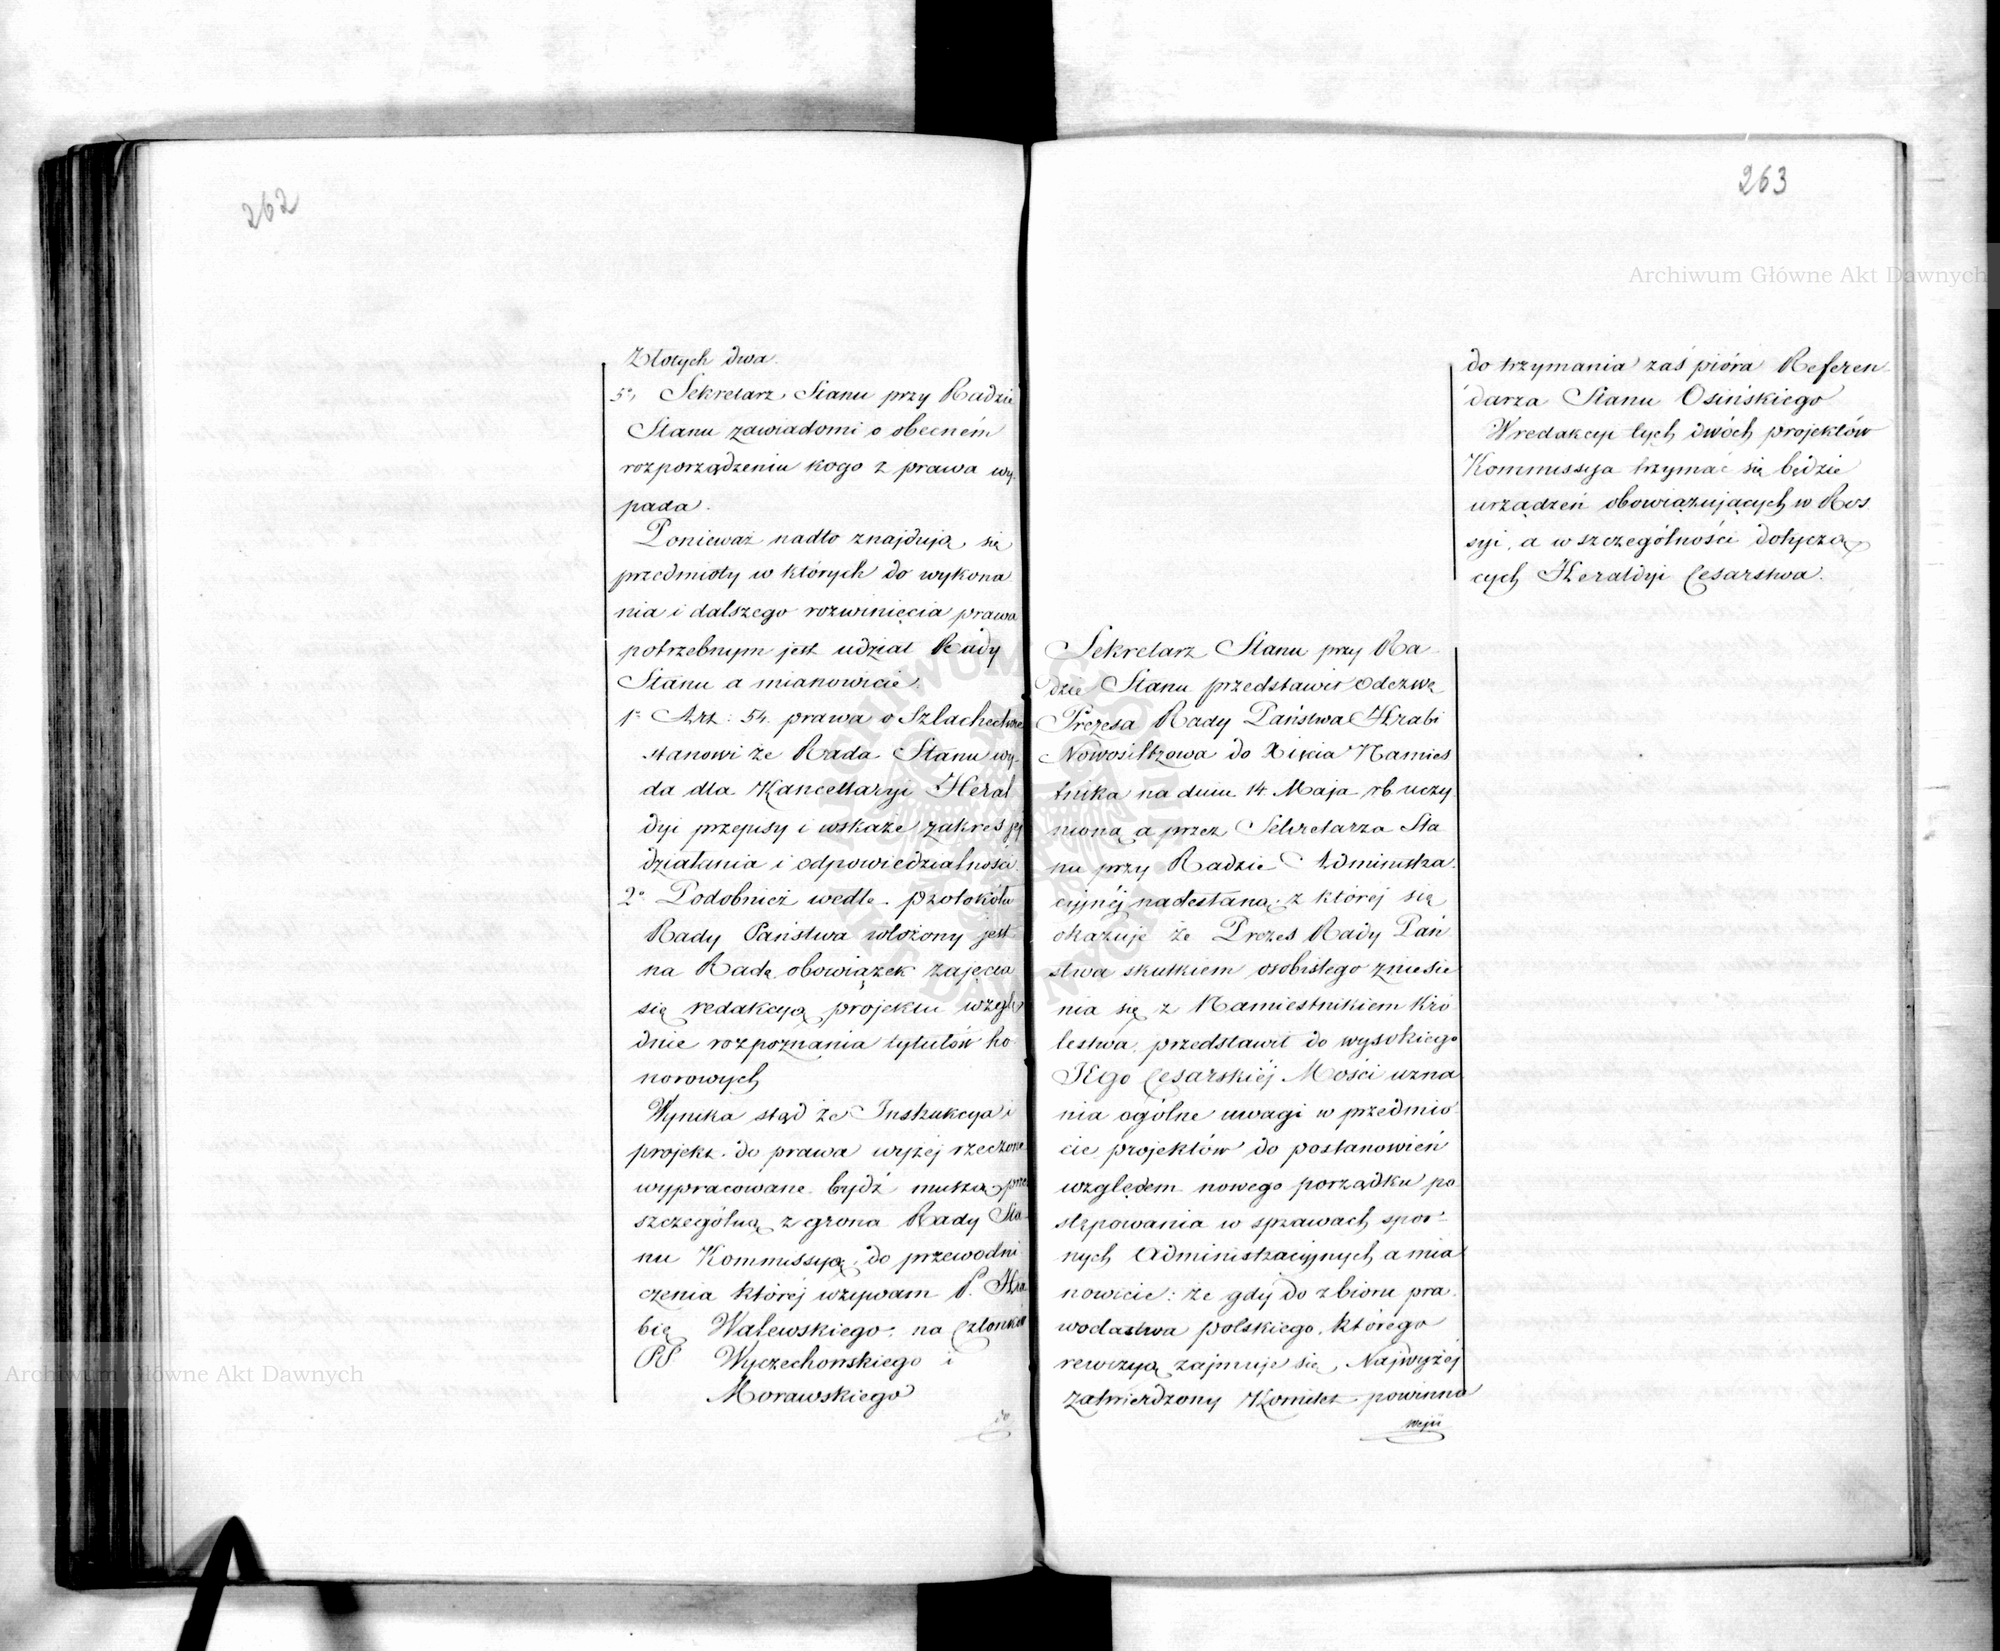 262
Złotych dwa.
5°, Sekretarz Stanu przy Radzie
Stanu zawiadomi o obecném
rozporządzeniu kogo z prawa wy-
pada.
Ponieważ nadto znajdują się
przedmioty w których do wykona
nia i dalszego rozwinięcia prawa
potrzebnym jest udział Rady
Stanu a mianowicie.
1° Art: 54. prawa o Szlachectwie
stanowi że Rada Stanu wy-
da dla Kancellaryi Heral
dyi przepisy i wskaże zakres jej
działania i odpowiedzialności.
2° Podobnież wedle protokółu
Rady Państwa włożony jest
na Radę obowiązek zajęcia
się redakcyą projektu wzglę
dnie rozpoznania tytułów ho
norowych
Wynika stąd że Instrukcya i
projekt do prawa wyżej rzeczone
wypracowane bydź muszą przez
szczególną z grona Rady Sta-
nu Kommissyą, do przewodni
czenia której wzywam P. Hra
bię Walewskiego, na Członków
PP Wyczechowskiego i
Morawskiego
do
263
Archiwum Główne Akt Dawnych
do trzymania zaś pióra Referen-
darza Stanu Osińskiego
W redakcyi tych dwóch projektów
Kommissya trzymać się będzie
urządzeń obowiązujących w Ros
syi, a w szczególności dotyczą
cych Heraldyi Cesarstwa.
Sekretarz Stanu przy Ra-
dzie Stanu przedstawił odezwę
Prezesa Rady Państwa Hrabi
Nowosiltzowa do Xięcia Namies
tnika na dniu 14 Maja rb uczy-
nioną a przez Sekretarza Sta
nu przy Radzie Administra-
cyjnéj nadesłaną, z której się
okazuje że Prezes Rady Pań
stwa skutkiem osobistego zniesie
nia się z Namiestnikiem Kró
lestwa, przedstawił do wysokiego
JEgo Cesarskiéj Mości uzna
nia ogólne uwagi w przedmio-
cie projektów do postanowień
względem nowego porządku po
stępowania w sprawach spor-
nych Administracyjnych, a mia
nowicie: że gdy do zbioru pra-
wodastwa polskiego, którego
rewizyą zajmuje się, Najwyżej
zatwierdzony Komitet powinno
wejśi
Archiwum Główne Akt Dawnych